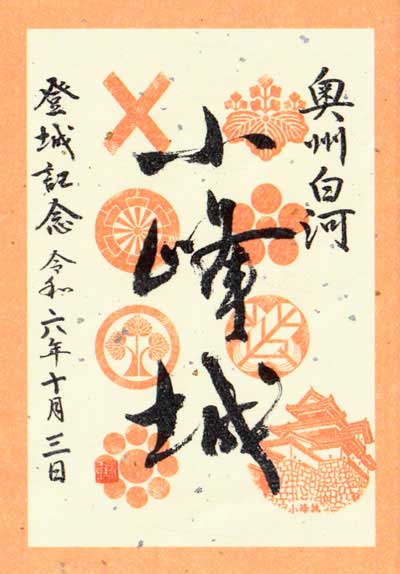 奥州白河
小峰城
登城記念 令和六年十月三日